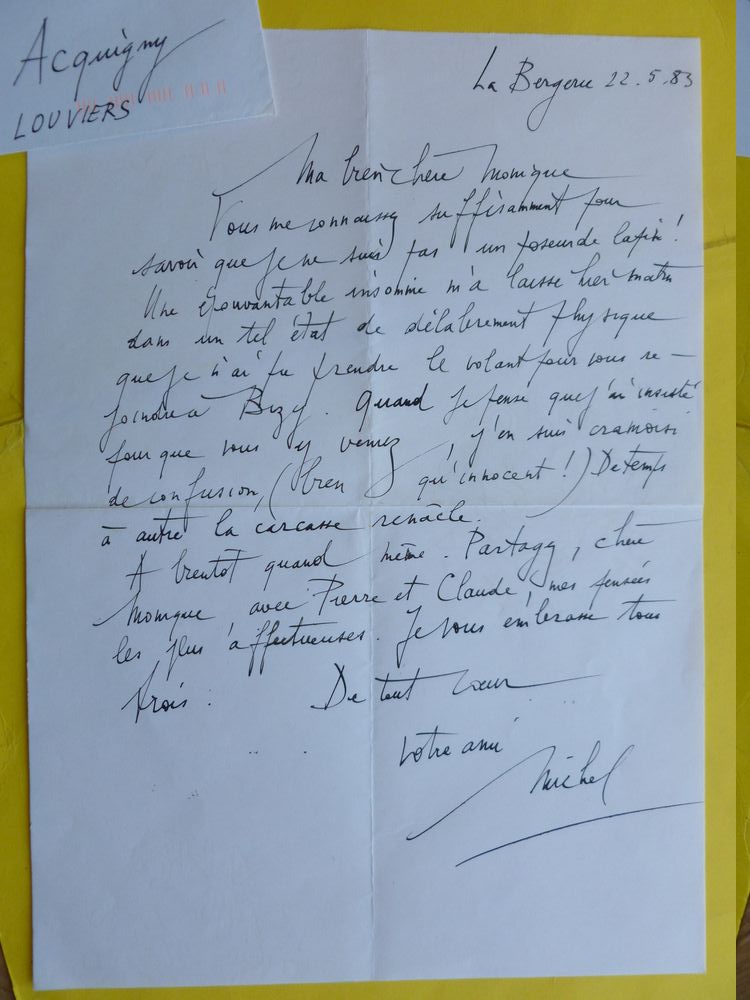 Acquigny
LOUVIERS
La Bergerie 22.5.83
Ma bien chère Monique
Vous me connaissez suffisamment pour
savoir que je ne suis pas un poseur de lapin !
Une épouvantable insomnie m'a laissé hier matin
dans un tel état de délabrement physique
que je n'ai pu prendre le volant pour vous re-
joindre à Bizy. Quand je pense que j'ai insisté
pour que vous y veniez, j'en suis cramoisi
de confusion, (bien qu'innocent !) De temps
à autre la carcasse renâcle.
A bientôt quand même. Partagez, chère
Monique avec Pierre et Claude, mes pensées
les plus affectueuses. Je vous embrasse tous
trois. De tout cœur
votre ami
Michel